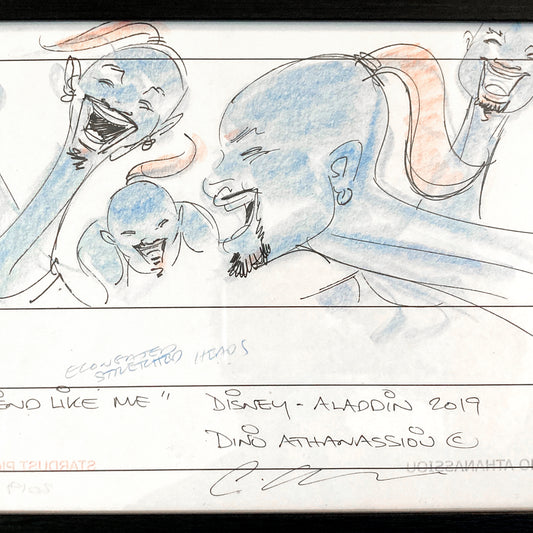 STRETCHED HEADS
END LIKE ME" DISNEY - ALADDIN 2019
DINO ATHANASSIOU ©
STARDUST PI O ATHANASSIOU